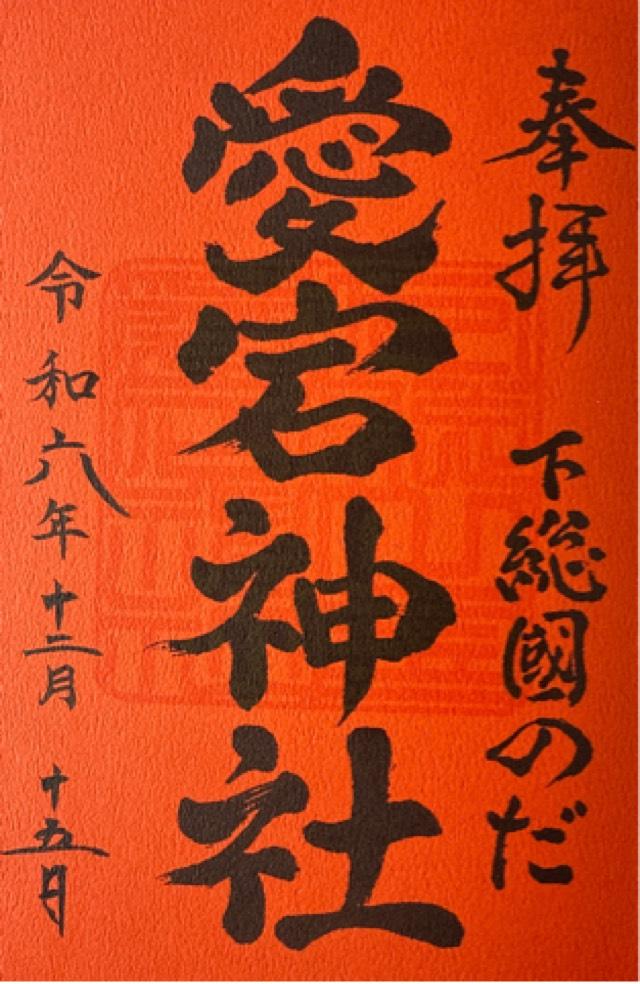 奉拝
下総國のだ
愛宕神社
令和六年十二月十五日